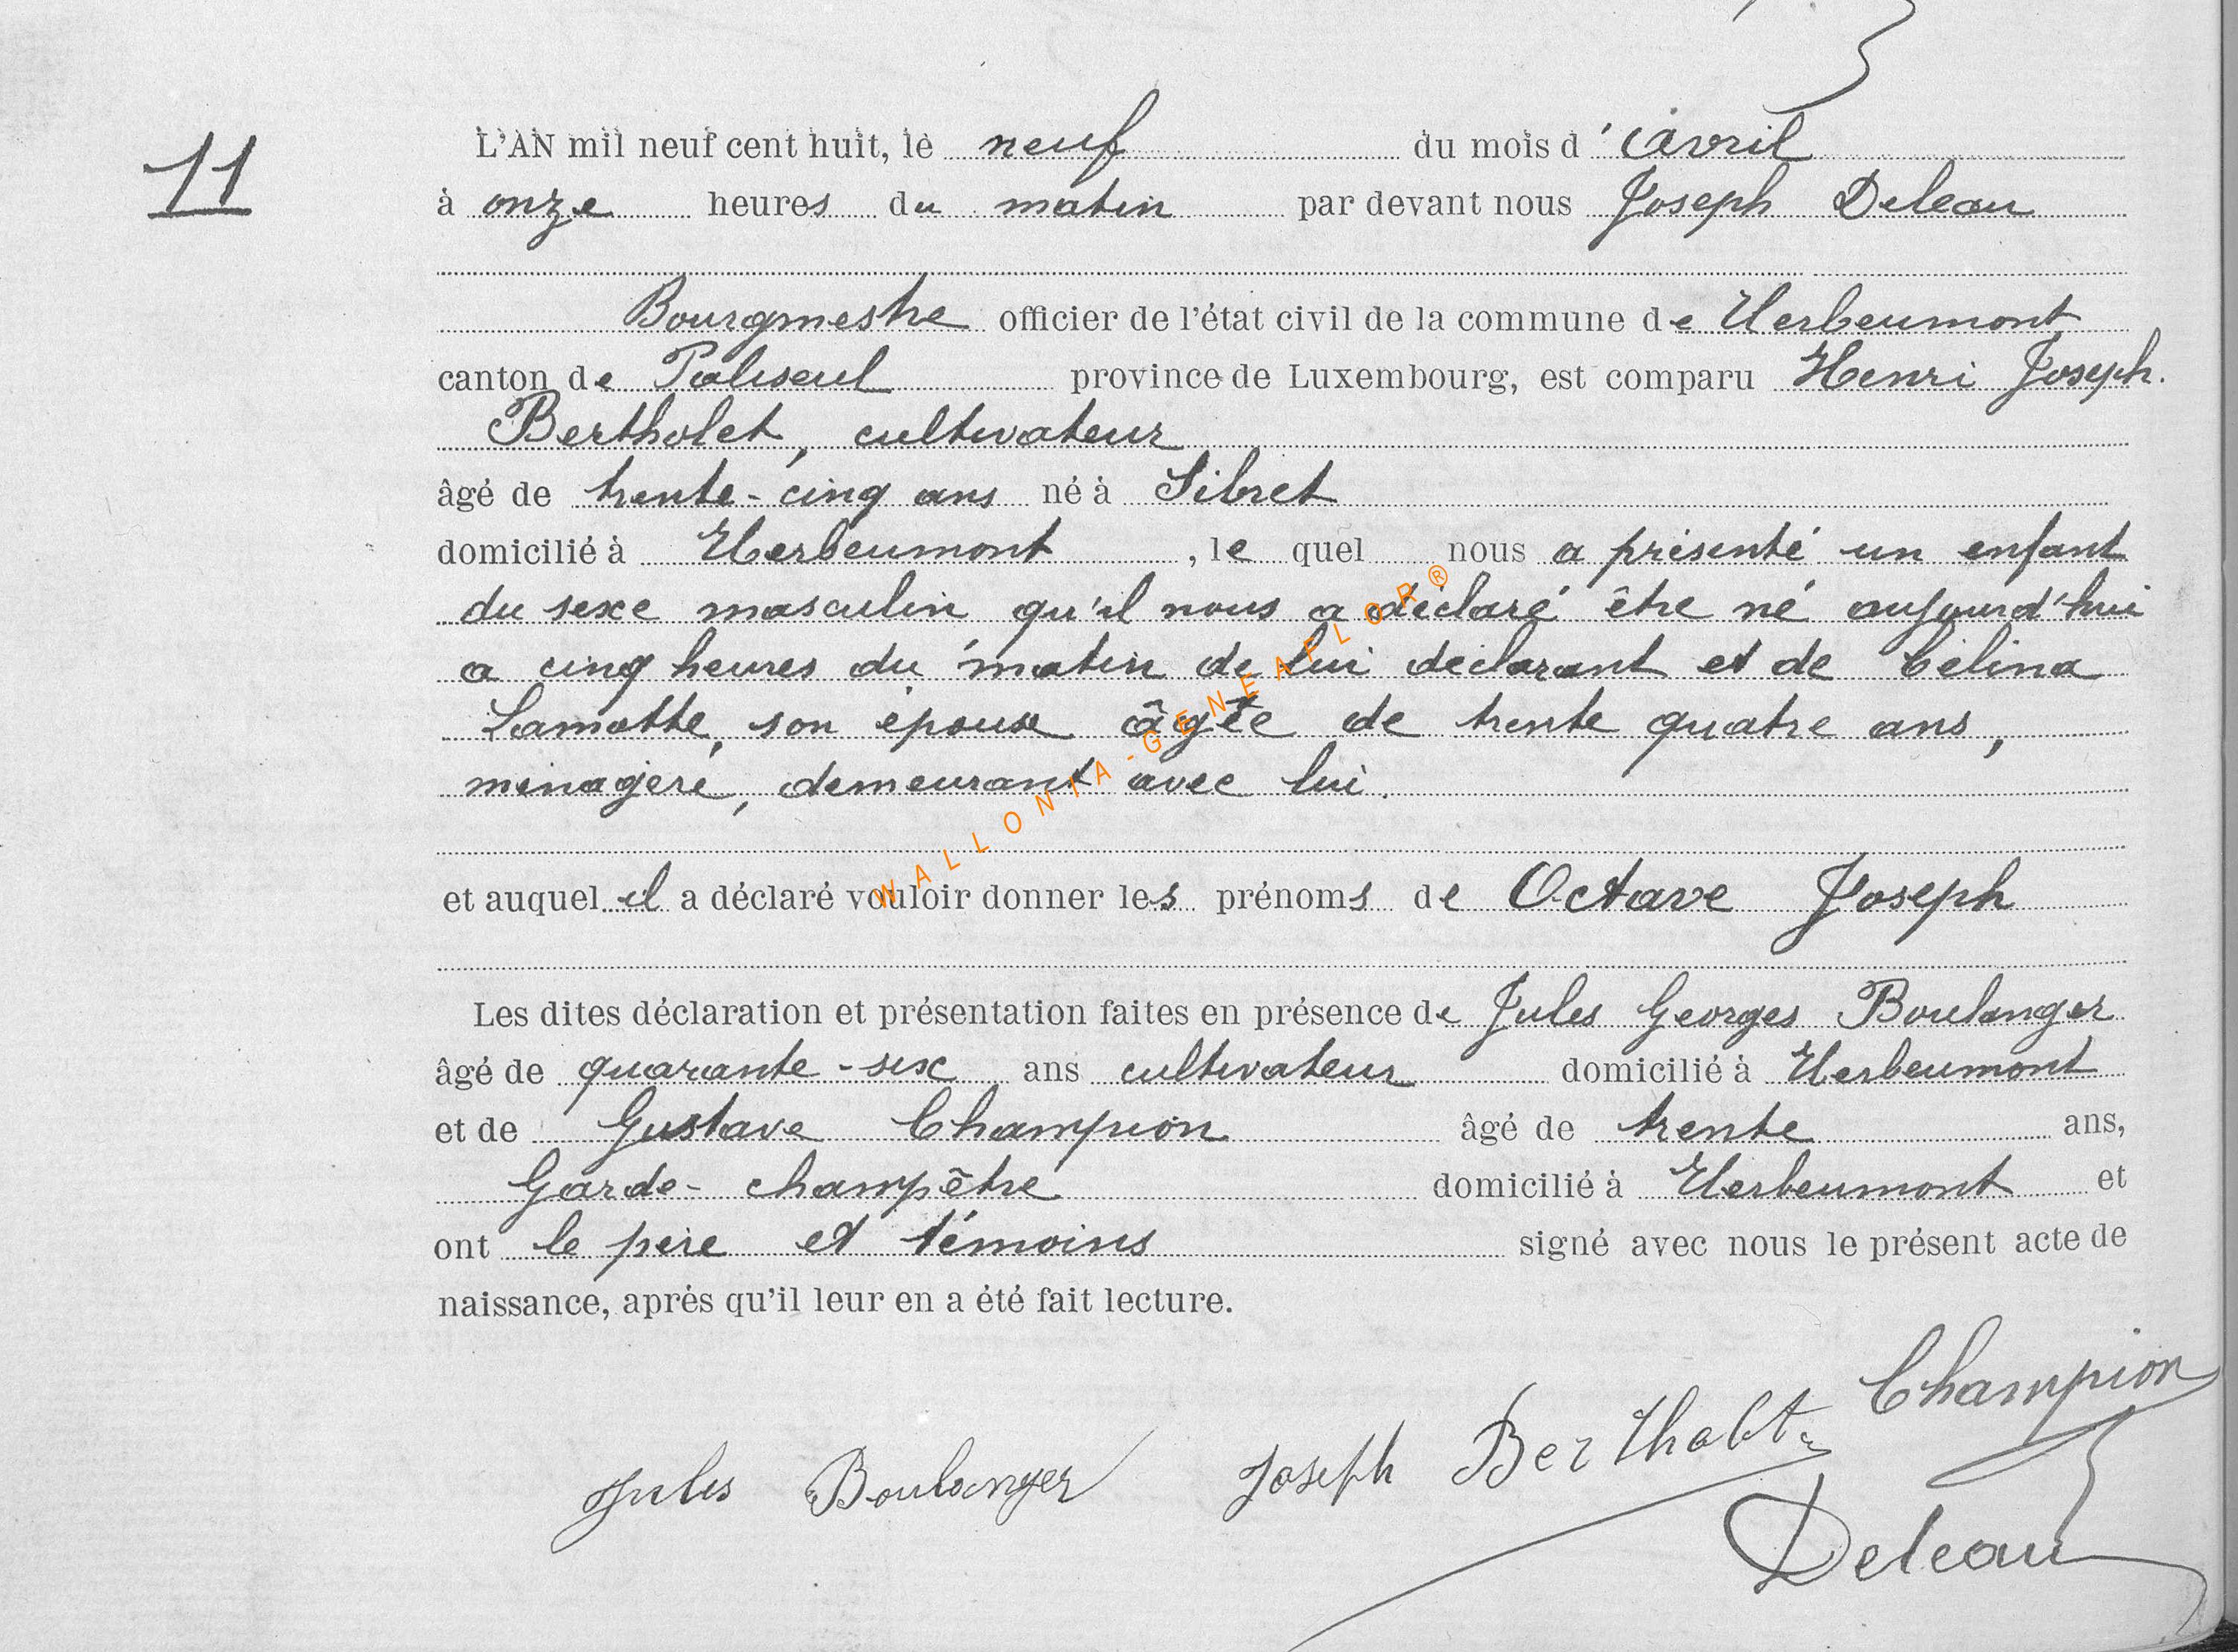 11
L'AN mil neuf cent huit, le neuf du mois d'avril
à onze heures du matin par devant nous Joseph Deleau
Bourgmestre officier de l'état civil de la commune de Herbeumont
canton de Paliseul province de Luxembourg, est comparu Henri Joseph.
Bertholet, cultivateur
âgé de trente-cinq ans né à Sibret
domicilié à Herbeumont, le quel nous a présenté un enfant
du sexe masculin qu'il nous a déclaré être né aujourd'hui
a cinq heures du matin de lui déclarant et de Célina
Lamotte, son épouse âgée de trente quatre ans,
ménagère, demeurant avec lui.
WALLONIA-GENEAFLOR®
et auquel il a déclaré vouloir donner les prénoms de Octave Joseph
Les dites déclaration et présentation faites en présence de Jules Georges Boulanger
âgé de quarante-six ans cultivateur domicilié à Herbeumont
et de Gustave Champion âgé de trente ans,
Garde-champêtre domicilié à Herbeumont et
ont le père et témoins signé avec nous le présent acte de
naissance, après qu'il leur en a été fait lecture.
Champion
Jules Boulanger Joseph Bertholet
Deleau